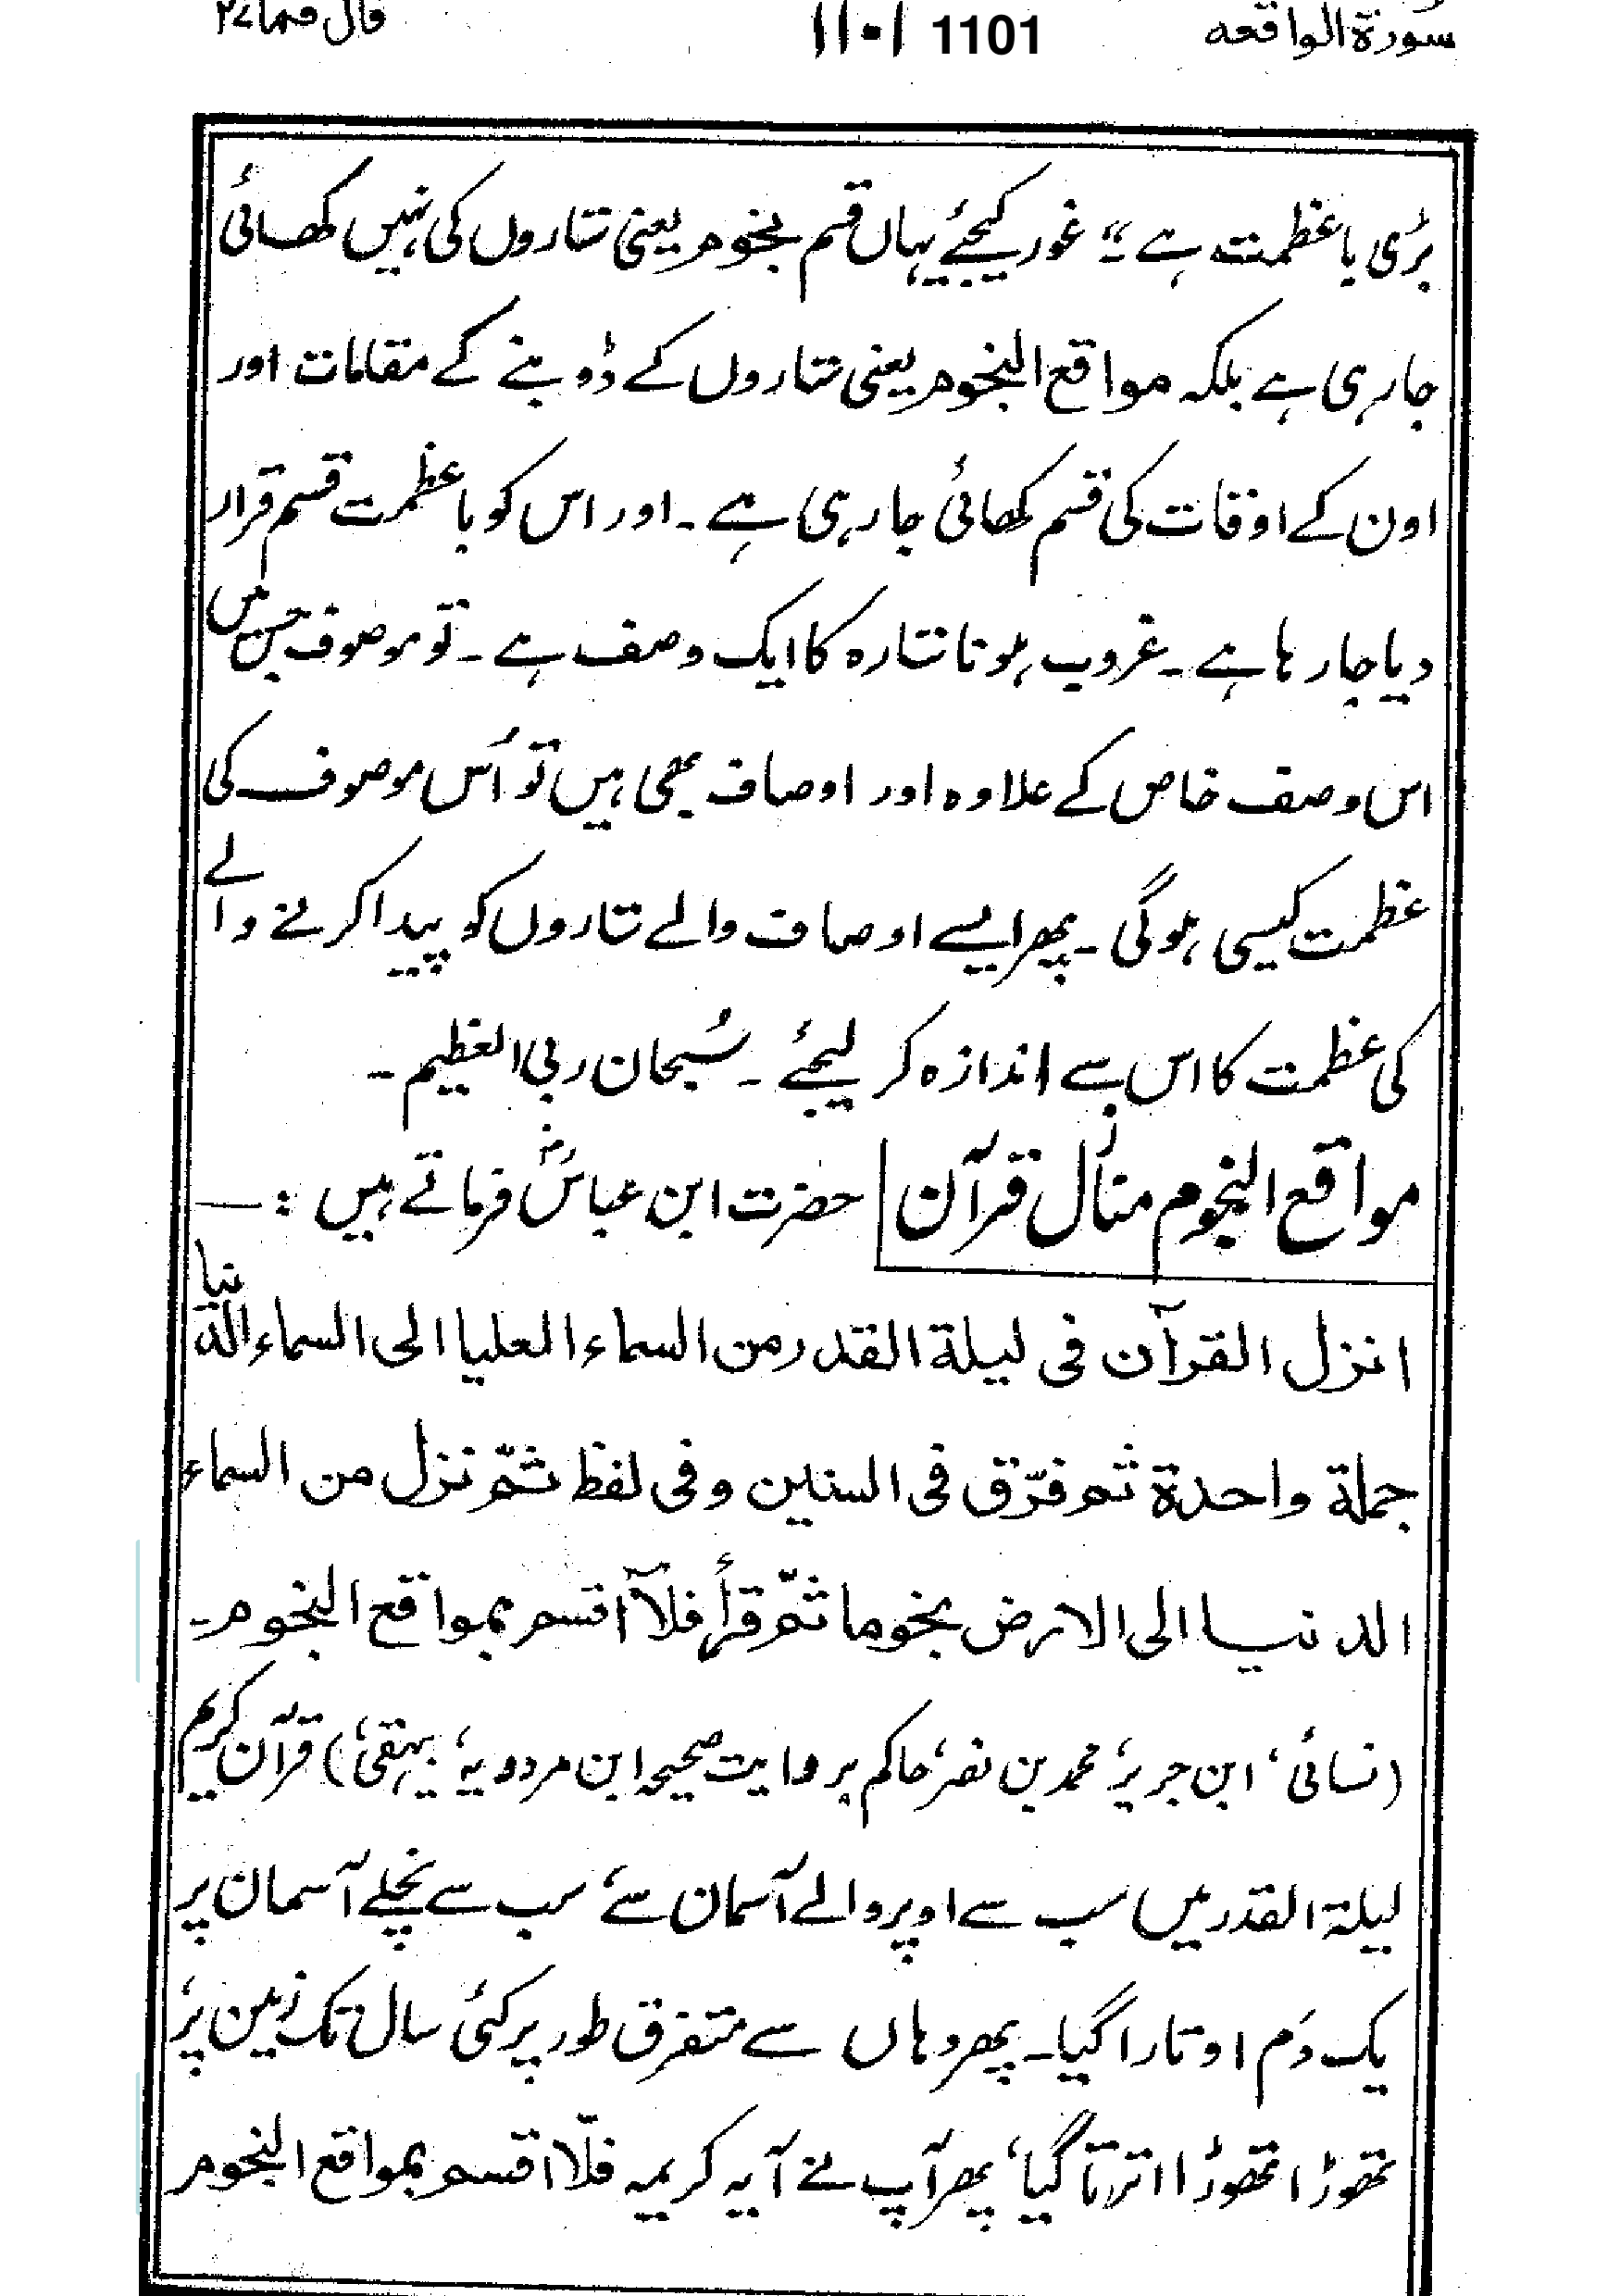 سورۃ الواقعہ ۱۱۰۱ 1101 قال فما ۲۷
بڑی باعظمت ہے“ غور کیجئے یہاں قسم نجوم یعنی ستاروں کی نہیں کھائی
جارہی ہے بلکہ مواقع النجوم یعنی ستاروں کے ڈوبنے کے مقامات اور
اون کے اوقات کی قسم کھائی جارہی ہے ۔ اور اس کو باعظمت قسم قرار
دیا جارہا ہے ۔ غروب ہونا ستارہ کا ایک وصف ہے ۔ تو موصوف جس میں
اس وصف خاص کے علاوہ اور اوصاف بھی ہیں تو اُس موصوف کی
عظمت کیسی ہوگی ۔ پھر ایسے اوصاف والے ستاروں کو پیدا کرنے والے
کی عظمت کا اس سے اندازہ کر لیجئے ۔ سُبحان ربی العظیم ۔
مواقع النجوم منازل قرآن حضرت ابن عباسؓ فرماتے ہیں : —
انزل القرآن فی لیلة القدر من السماء العلیا الی السماء الدنیا
جملة واحدة ثم فرّق فی السنین وفی لفظ ثمّ نزل من السماء
الدنیا الی الارض نجوما ثمّ قرأ فلآ اقسم بمواقع النجوم ۔
(نسائی، ابن جریر، محمد بن نصر، حاکم بروایت صحیحہ ابن مردویہ، بیہقی) قرآن کریم
لیلۃ القدر میں سب سے اوپر والے آسمان سے، سب سے نچلے آسمان پر
یک دَم اوتارا گیا ۔ پھر وہاں سے متفرق طور پر کئی سال تک زمین پر،
تھوڑا تھوڑا اترتا گیا، پھر آپ نے آیہ کریمہ فلّا اقسم بمواقع النجوم